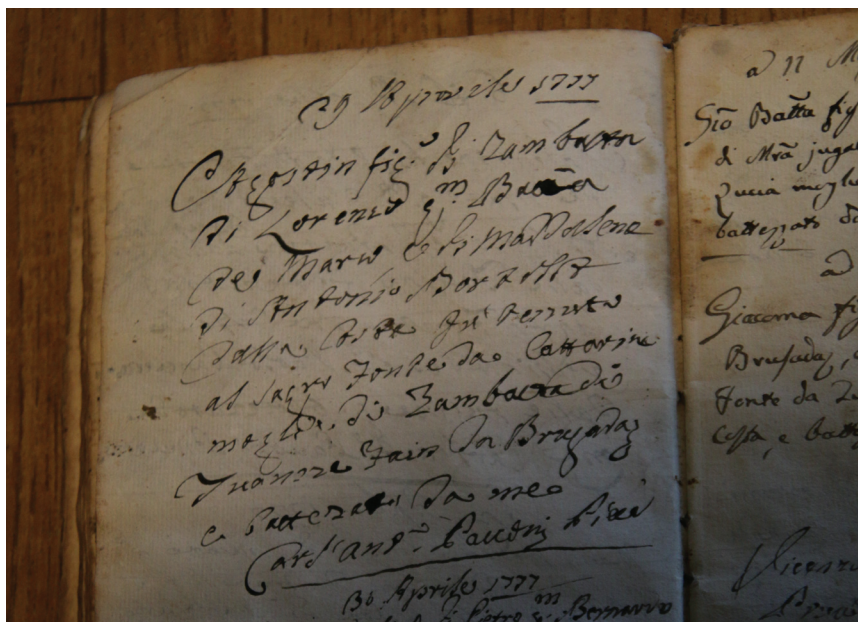 29 Aprile 1777
Agostin fig.º di Zambatta
di Lorenzo qm Batta
de Marco e di Maddalena
di Antonio Bortolot
Dalla Costa fu tenuto
al Sacro Fonte da Cattarina
moglie di Zambatta di
Zuanne Fain da Brusadaz
e battezato da me
30 Aprile 1777
di Pietro qm Bernardo
a 11
Gio Batta fig
di Mra jugal
Lucia mogli
battezzato da
ad
Giacoma fig
Brusadaz,
fonte da
Costa, e batt
Vicenzo